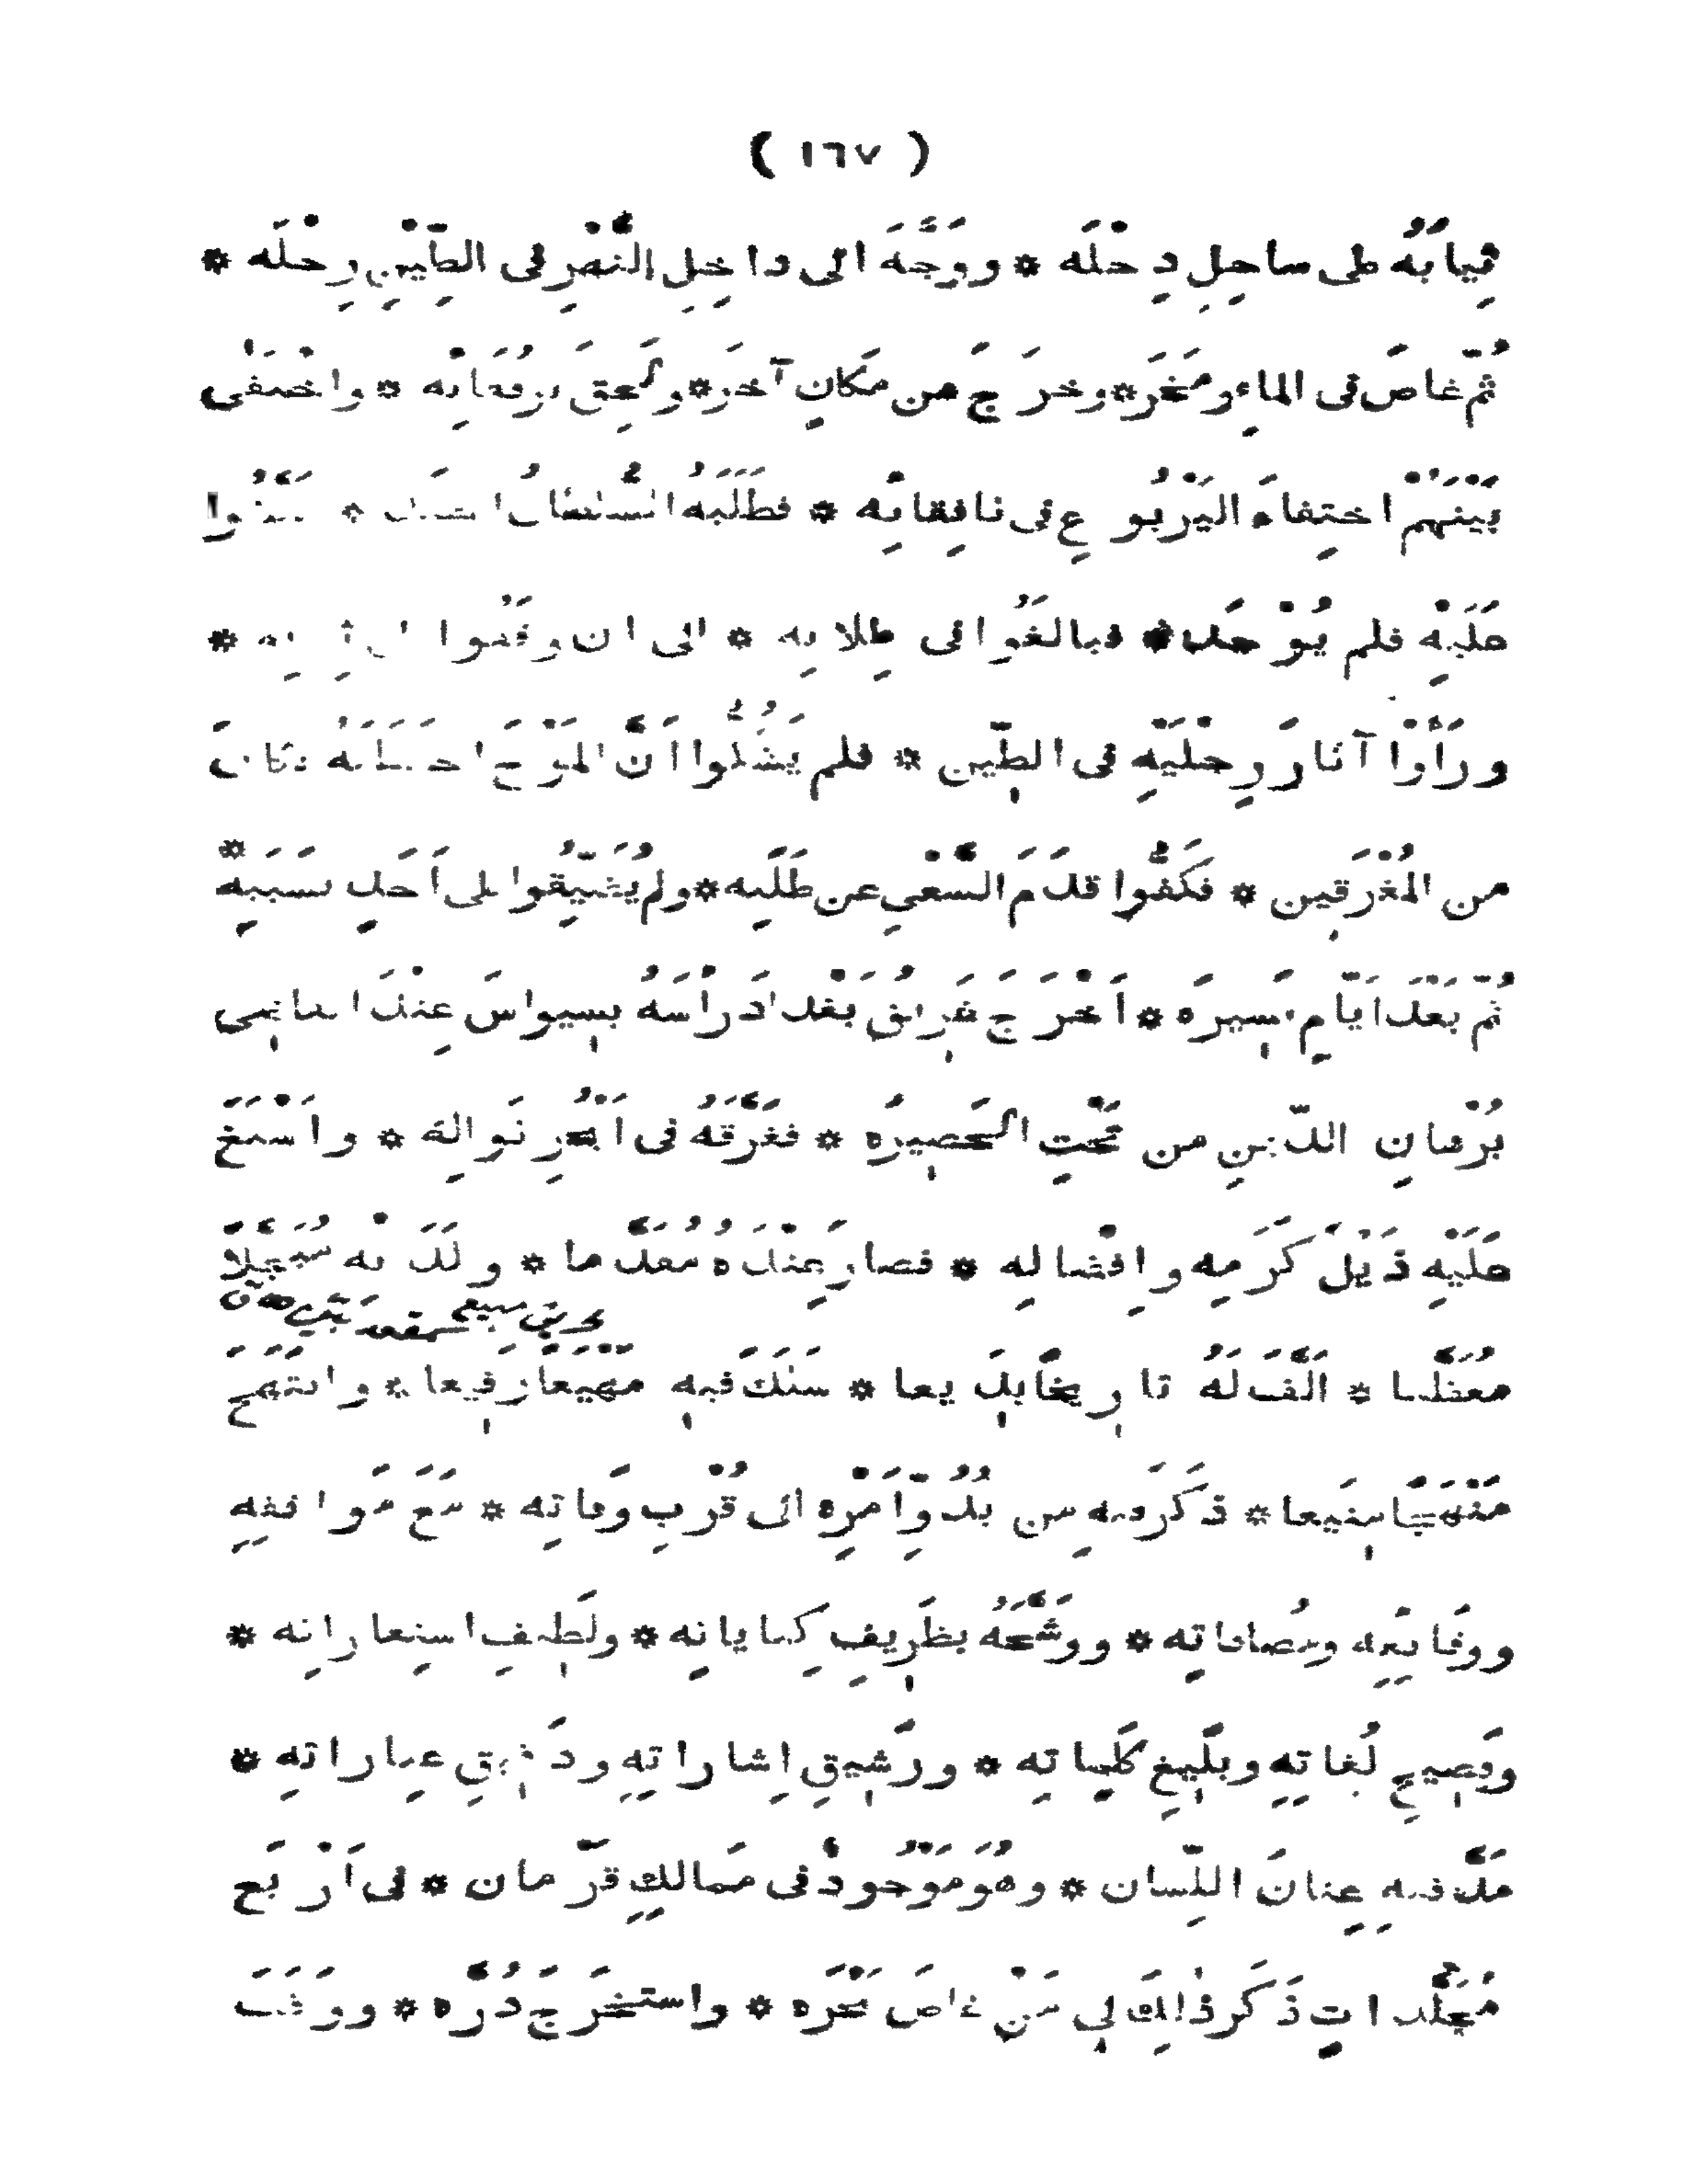 ( ١٦٧ )
ثِيابَهُ على ساحِلِ دِجْلَه * ووَجَّهَ الى داخِلِ النَّهْرِ فى الطِّيْنِ رِجْلَه *
ثُمّ غاصَ فى الماءِ ومَخَر * وخرَجَ من مكانٍ آخَر * ولَحِقَ برُفَقائِه * واختَفٰى
بَيْنَهُمْ اختِفاءَ اليَرْبُوعِ فى نافِقائِه * فطَلَبَهُ السُّلطانُ *
عَلَيْهِ فلم يُوْجَد * فبالَغُوا فى طِلابِه * الى ان وقَفُوا *
ورَأَوْا آثارَ رِجْلَيْهِ فى الطِّين * فلم يَشُكُّوا اَنَّ المَوْجَ
من المُغْرَقِين * فكَفُّوا قدَمَ السَّعْيِ عن طَلَبِه * ولم يُضَيِّقُوا على اَحَدٍ بسَبَبِه *
ثُمّ بَعْدَ اَيّامٍ يَسِيرَه * اَخْرَجَ غَرِيقُ بَغْدادَ رَأْسَهُ بسِيواسَ عِنْدَ القاضِى
بُرْهانِ الدّينِ من تَحْتِ الحَصِيرَه * فغَرَّقَهُ فى اَبْحُرِ نَوالِه * واَسْبَغَ
عَلَيْهِ ذَيْلَ كَرَمِه واِفْضالِه * فصارَ عِنْدَهُ مُقَدَّما * ولَدَيْه مُبَجَّلاً
مُعَظَّما * اَلَّفَ لَهُ تارِيخًا بَدِيعا * سَلَكَ فيهِ مَهْيَعًا رَفِيعا * وانتَهَجَ
مَنْهَجًا مَنِيعا * ذكَرَ فيهِ من بُدُوِّ اَمْرِه الى قُرْبِ وَفاتِه * مَعَ مَواقِفِهِ
ووَقائِعِه ومُصافاتِه * ووَشَّحَهُ بظَرِيفِ كِناياتِه * ولَطِيفِ استِعاراتِه *
وفَصِيحِ لُغاتِهِ وبَلِيغِ كَلِماتِه * ورَشِيقِ اِشاراتِهِ ودَقِيقِ عِباراتِه *
مَدَّ فيهِ عِنانَ اللِّسان * وهُوَ مَوْجُودٌ فى مَمالِكِ قرَمان * فى اَرْبَعِ
مُجَلَّداتٍ ذَكَرَ ذٰلِكَ لِي مَنْ غاصَ بَحْرَه * واستَخْرَجَ دُرَّه * ووَقَفَ